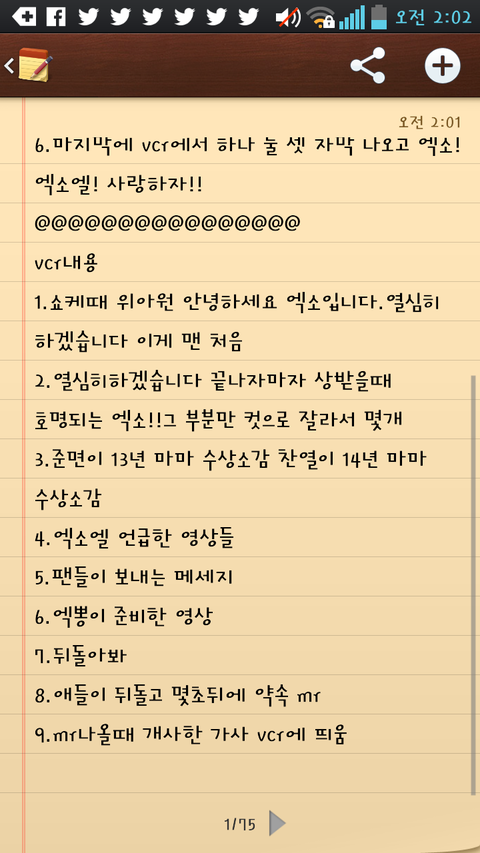 오전 2:02
오전 2:01
6.마지막에 vcr에서 하나 둘 셋 자막 나오고 엑소!
엑소엘! 사랑하자!!
@@@@@@@@@@@@@@@@
vcr내용
1.쇼케때 위아원 안녕하세요 엑소입니다.열심히
하겠습니다 이게 맨 처음
2.열심히하겠습니다 끝나자마자 상받을때
호명되는 엑소!!그 부분만 컷으로 잘라서 몇개
3.준면이 13년 마마 수상소감 찬열이 14년 마마
수상소감
4.엑소엘 언급한 영상들
5.팬들이 보내는 메세지
6.엑뽕이 준비한 영상
7.뒤돌아봐
8.애들이 뒤돌고 몇초뒤에 약속 mr
9.mr나올때 개사한 가사 vcr에 띄움
1/75